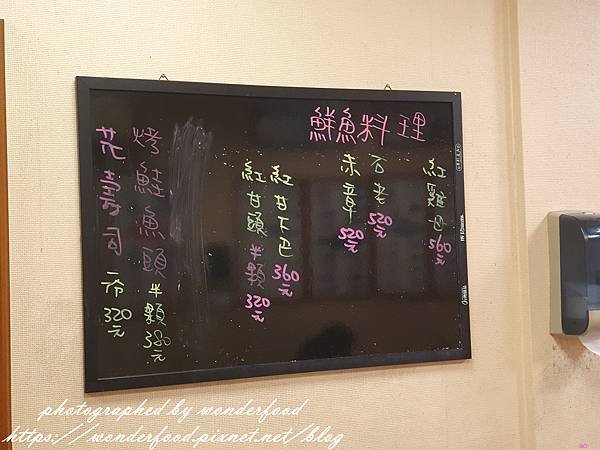 鮮魚料理
紅𩺊包 560元
石老 520元
赤章 520元
紅甘下巴 360元
紅甘頭半顆 320元
烤鮭魚頭半顆 380元
花壽司一份 320元
photographed by wonderfood
https://wonderfood.pixnet.net/blog